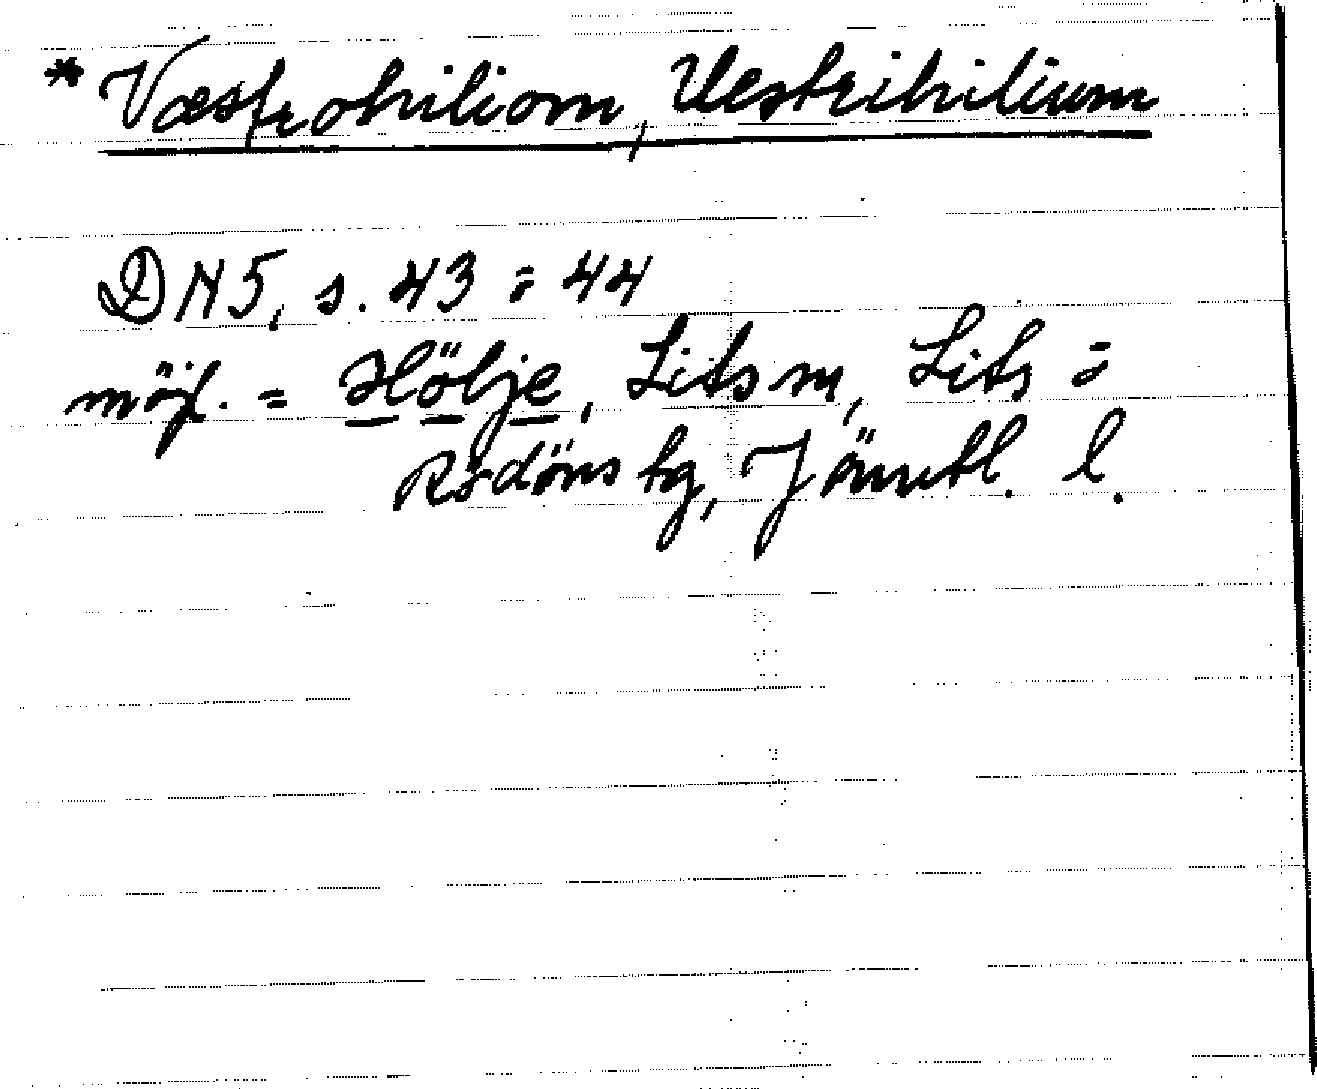 * Væstrohiliom, Vestrihilium
DN5, s. 43 : 44
möjl. = Hölje, Lits sn, Lits :
Rödöns tg, Jämtl. l.